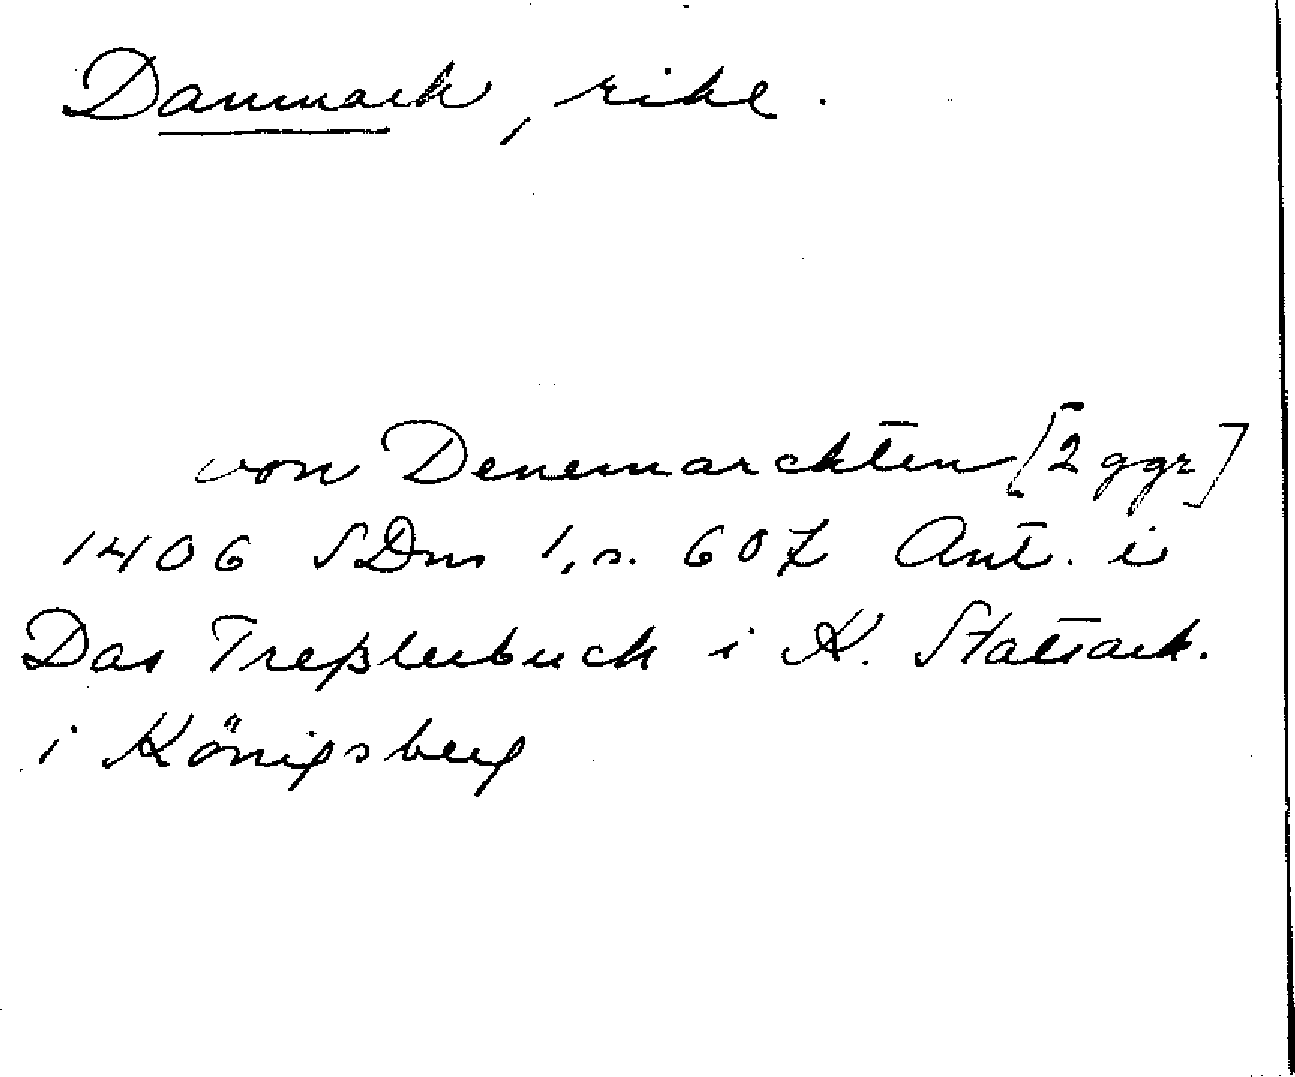 Danmark, rike.
von Denemarckten [2 ggr]
1406 SDns 1, s. 607 Ant. i
Das Treßlerbuch i K. Statsark.
i Königsberg